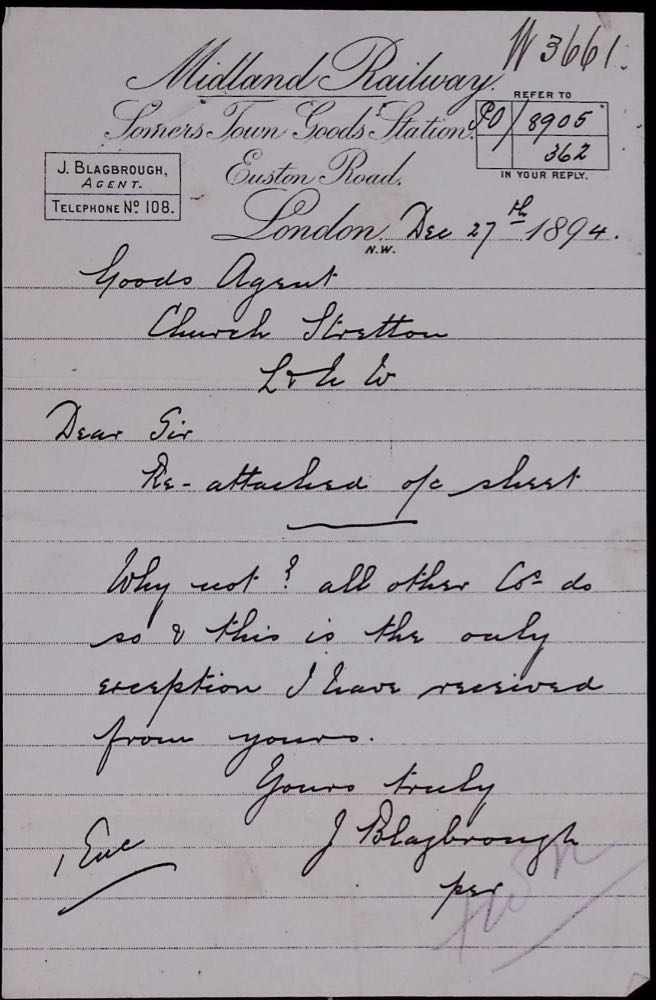 W 3661.
Midland Railway.
Somers Town Goods Station.
Euston Road,
London. Dec 27th 1894.
N.W.
REFER TO
PO / 8905
362
IN YOUR REPLY.
J. BLAGBROUGH,
AGENT.
TELEPHONE Nº 108.
Goods Agent
Church Stretton
L & N W
Dear Sir
Re- attached o/c sheet
Why not? all other Cos do
so & this is the only
exception I have received
from yours.
Yours truly
1 Enc
J Blagbrough
per